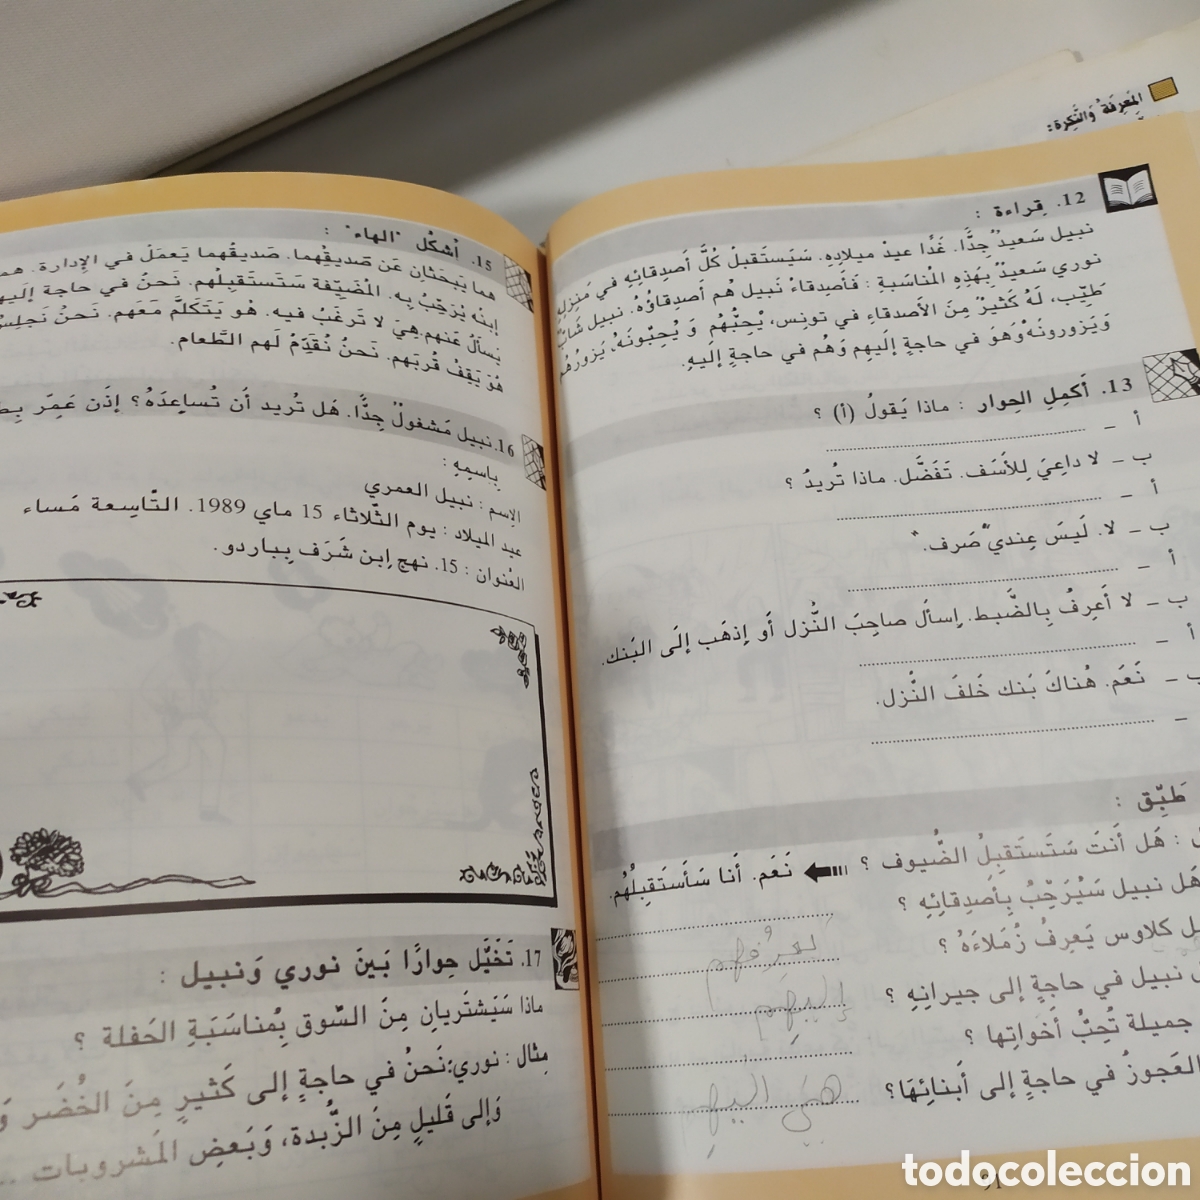 المَعرِفَة وَالنَّكِرة :
12. قِراءة :
نبيل سَعيدٌ جِدًّا. غَدًا عيدُ ميلادِهِ. سَيَستَقبلُ كُلَّ أَصدِقائِهِ في مَنزِلِهِ
نوري سَعيدٌ بِهَذِهِ المُناسَبَةِ : فَأَصدِقاءُ نَبيل هُم أَصدِقاؤُهُ. نبيل شابٌّ
طَيِّب، لَهُ كَثيرٌ مِنَ الأَصدقاءِ في تونِس، يُحِبُّهُم وَ يُحِبُّونَهُ، يَزورُهُم
وَيَزورونَهُ وَهوَ في حاجةٍ إلَيهِم وَهُم في حاجةٍ إلَيهِ.
13. أَكمِلِ الحِوار : ماذا يَقولُ (أ) ؟
أ –
ب – لا داعِيَ لِلأَسَف. تَفَضَّل. ماذا تُريدُ ؟
أ –
ب – لا. لَيسَ عِندي صَرف.
أ –
ب – لا أَعرِفُ بِالضَّبط. إسأَل صاحِبَ النُّزل أَو إذهَب إلَى البَنك.
أ –
– نَعَم. هُناكَ بَنك خَلفَ النُّزل.
–
طَبِّق :
: هَل أَنتَ سَتَستَقبِلُ الضُّيوف ؟ نَعَم. أَنا سَأَستَقبِلُهُم.
هَل نبيل سَيُرَحِّبُ بِأَصدِقائِهِ ؟
كلاوس يَعرِفُ زُمَلاءَهُ ؟
نبيل في حاجةٍ إلى جيرانِهِ ؟
جميلة تُحِبُّ أَخواتِها ؟
العَجوزُ في حاجةٍ إلى أَبنائِهَا؟
إليهِم
91
15. أُشكُل "الهاء" :
هما يَبحَثانِ عَن صَديقِهُما. صَديقُهما يَعمَلُ في الإدارة.
إبنُه يُرَحِّبُ بِه. المُضَيِّفة سَتَستَقبِلُهم. نَحنُ في حاجة
يَسأَلُ عَنهم. هِيَ لا تَرغَبُ فيه. هُو يَتَكَلَّمُ مَعَهم. نَحنُ نَجلِسُ
هُوَ يَقِفُ قُربَهم. نَحنُ نُقَدِّمُ لَهم الطَّعام.
16. نبيل مَشغولٌ جِدًّا. هَل تُريد أَن تُساعِدَهُ؟ إذَن عَمِّر
بِاسمِهِ :
الإسم : نبيل العمري
عيد الميلاد : يوم الثّلاثاء 15 ماي 1989. التّاسِعة مَساء
العُنوان : 15. نهج إبن شَرَف بِباردو.
17. تَخَيَّل حِوارًا بَينَ نوري وَنبيل :
ماذا سَيَشتَريانِ مِنَ السّوق بِمُناسَبَةِ الحَفلة ؟
مِثال : نوري: نَحنُ في حاجةٍ إلى كَثيرٍ مِنَ الخُضَر
وَإلى قَليلٍ مِنَ الزُّبدة، وَبَعضِ المَشروبات ...
todocoleccion